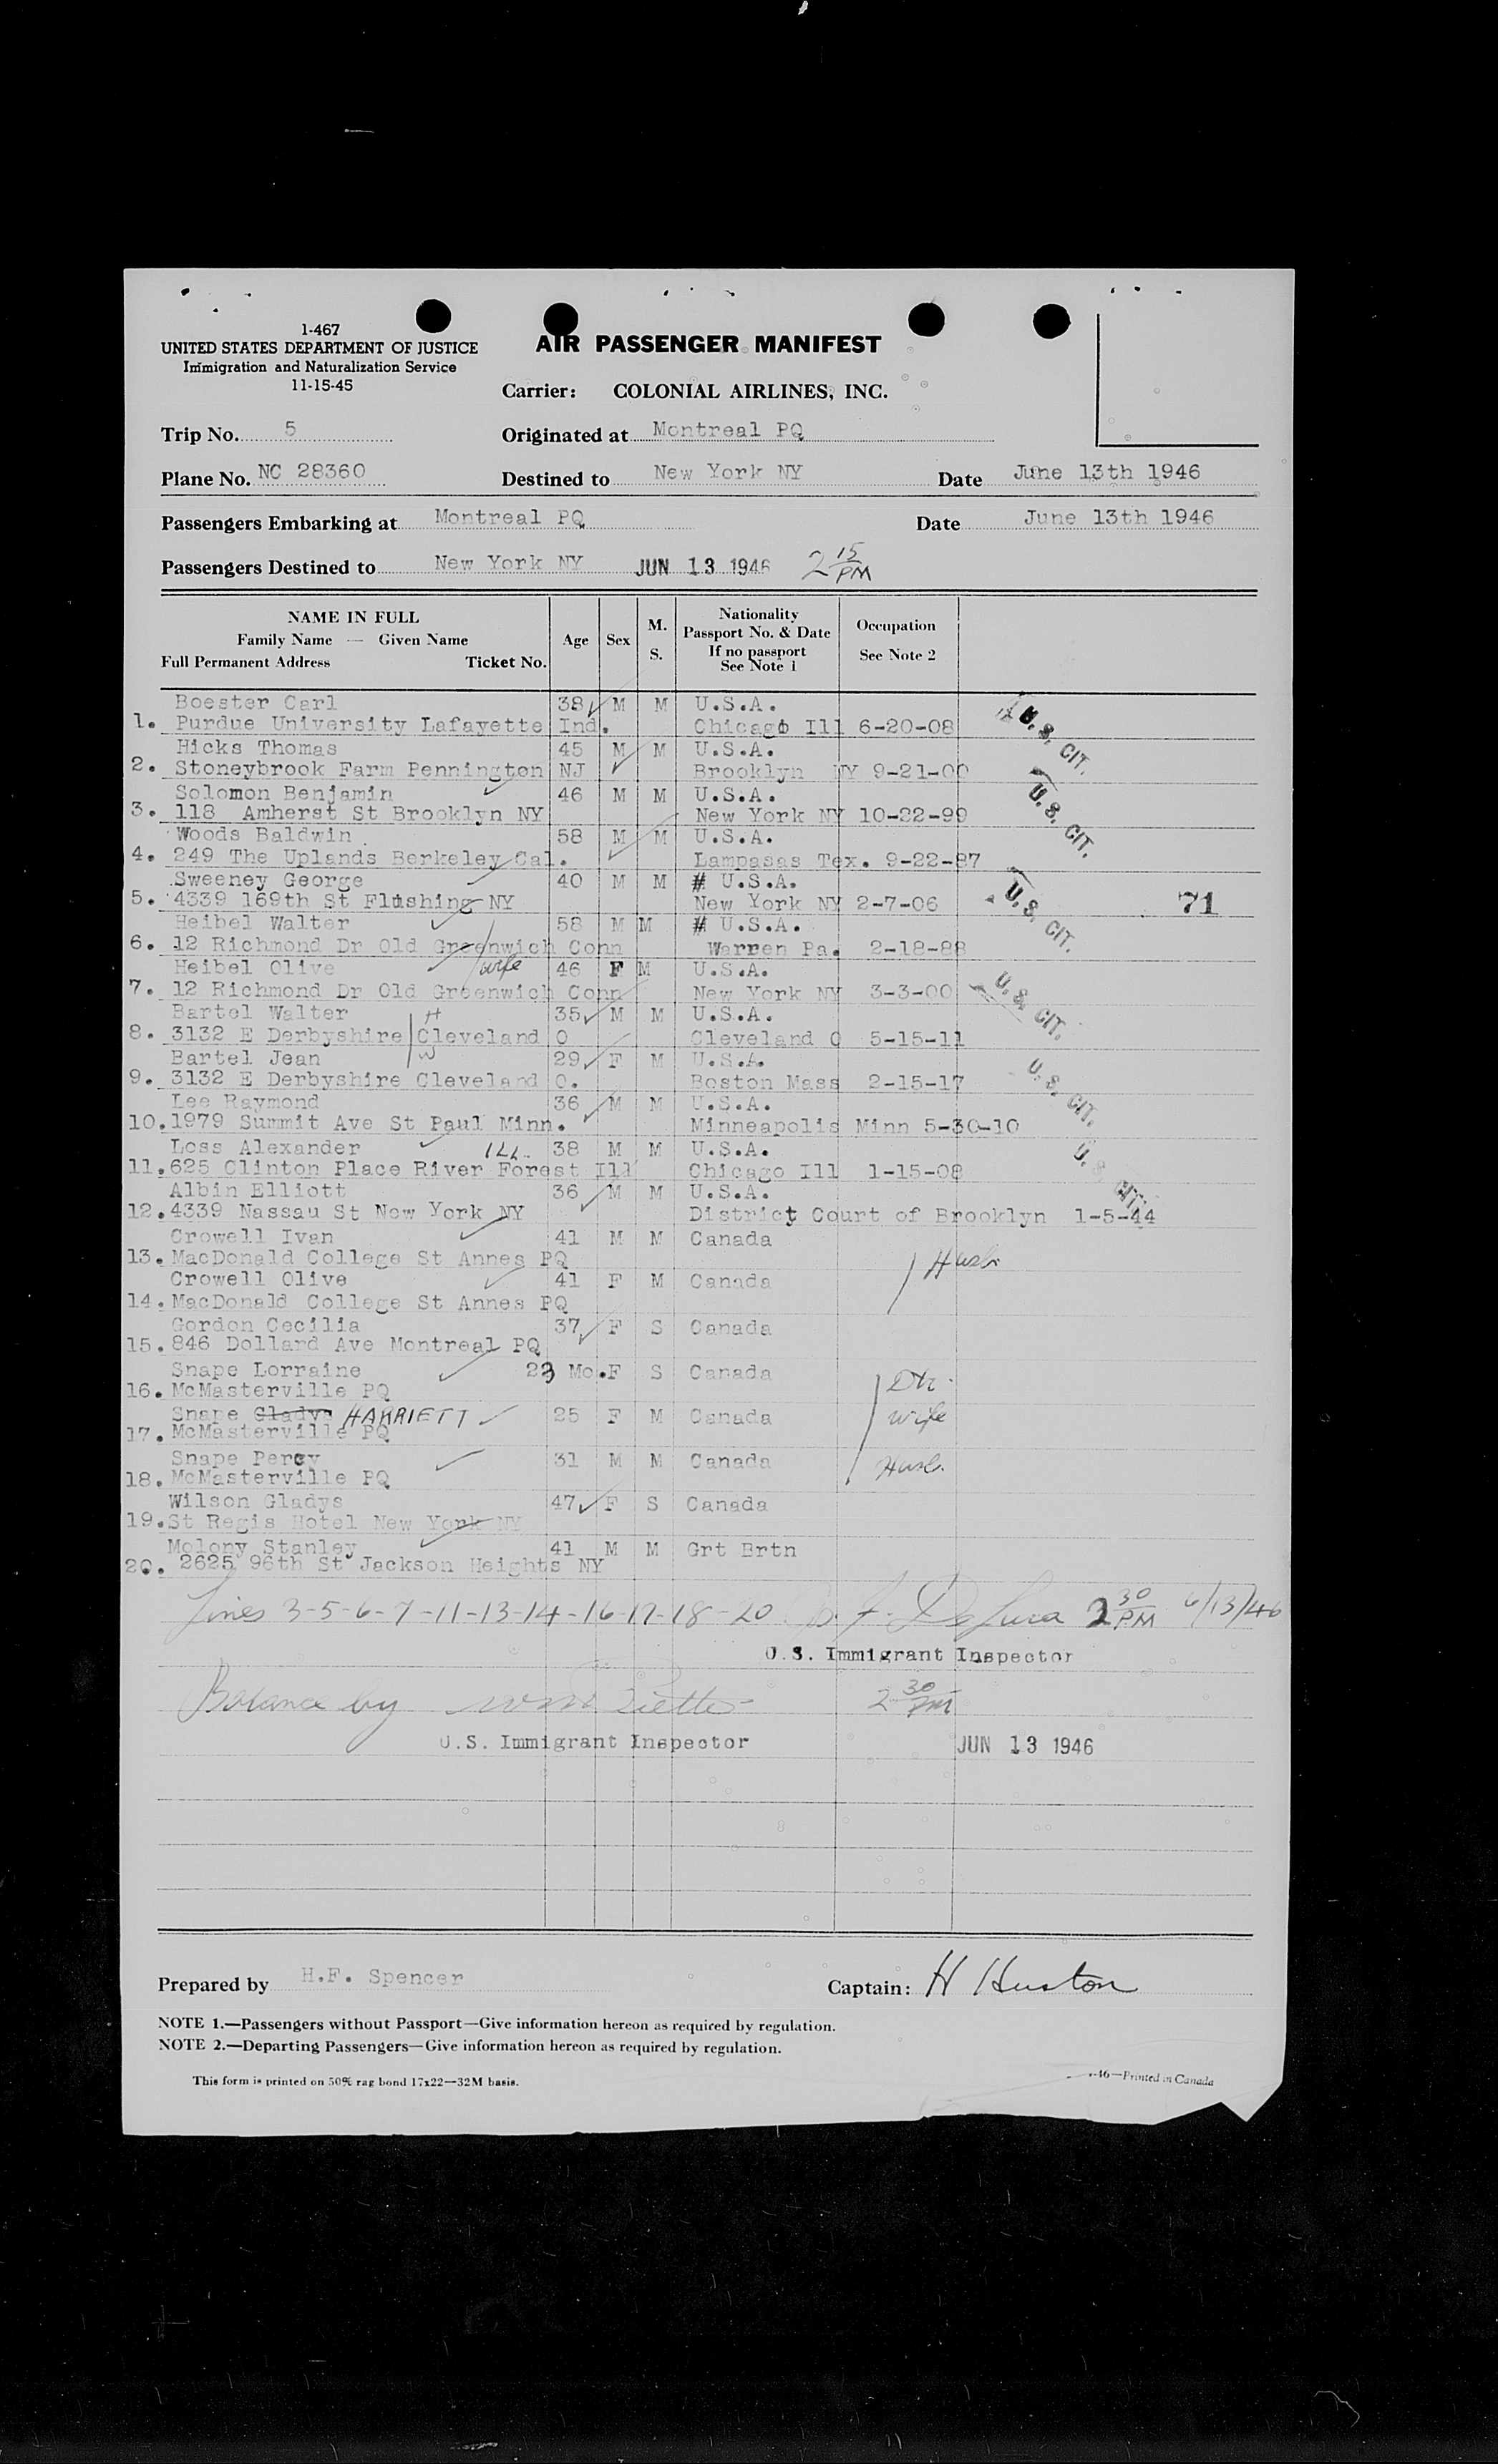 1-467
UNITED STATES DEPARTMENT OF JUSTICE
Immigration and Naturalization Service
11-15-45
AIR PASSENGER MANIFEST
Carrier: COLONIAL AIRLINES, INC.
Trip No. 5 Originated at Montreal PQ
Plane No. NC 28360 Destined to New York NY Date June 13th 1946
Passengers Embarking at Montreal PQ Date June 13th 1946
Passengers Destined to New York NY JUN 13 1946 2 15 PM
NAME IN FULL
Family Name — Given Name
Full Permanent Address Ticket No.
Age Sex M. S.
Nationality
Passport No. & Date
If no passport
See Note 1
Occupation
See Note 2
Boester Carl 38 M M U.S.A.
1. Purdue University Lafayette Ind. Chicago Ill 6-20-08 U.S. CIT.
Hicks Thomas 45 M M U.S.A.
2. Stoneybrook Farm Pennington NJ Brooklyn NY 9-21-00
Solomon Benjamin 46 M M U.S.A. U.S. CIT.
3. 118 Amherst St Brooklyn NY New York NY 10-22-99
Woods Baldwin 58 M M U.S.A.
4. 249 The Uplands Berkeley Cal. Lampasas Tex. 9-22-87
Sweeney George 40 M M # U.S.A.
5. 4339 169th St Flushing NY New York NY 2-7-06 U.S. CIT. 71
Heibel Walter 58 M M # U.S.A.
6. 12 Richmond Dr Old Greenwich Conn Warren Pa. 2-18-88
Heibel Olive wife 46 F M U.S.A.
7. 12 Richmond Dr Old Greenwich Conn New York NY 3-3-00 U.S. CIT.
Bartel Walter H 35 M M U.S.A.
8. 3132 E Derbyshire Cleveland O Cleveland O 5-15-11
Bartel Jean W 29 F M U.S.A.
9. 3132 E Derbyshire Cleveland O. Boston Mass 2-15-17 U.S. CIT.
Lee Raymond 36 M M U.S.A.
10. 1979 Summit Ave St Paul Minn. Minneapolis Minn 5-30-10
Loss Alexander ILL. 38 M M U.S.A.
11. 625 Clinton Place River Forest Ill Chicago Ill 1-15-08 U.S. CIT.
Albin Elliott 36 M M U.S.A.
12. 4339 Nassau St New York NY District Court of Brooklyn 1-5-44
Crowell Ivan 41 M M Canada
13. MacDonald College St Annes PQ Husb
Crowell Olive 41 F M Canada
14. MacDonald College St Annes PQ
Gordon Cecilia 37 F S Canada
15. 846 Dollard Ave Montreal PQ
Snape Lorraine 23 Mo. F S Canada
16. McMasterville PQ Dtr.
Snape Gladys HARRIETT 25 F M Canada wife
17. McMasterville PQ
Snape Percy 31 M M Canada Husb.
18. McMasterville PQ
Wilson Gladys 47 F S Canada
19. St Regis Hotel New York NY
Molony Stanley 41 M M Grt Brtn
20. 2625 96th St Jackson Heights NY
Lines 3-5-6-7-11-13-14-16-17-18-20 2 30 PM 6/13/46
U.S. Immigrant Inspector
Balance by 2 30 PM
U.S. Immigrant Inspector JUN 13 1946
Prepared by H.F. Spencer Captain: H Huston
NOTE 1.—Passengers without Passport—Give information hereon as required by regulation.
NOTE 2.—Departing Passengers—Give information hereon as required by regulation.
This form is printed on 50% rag bond 17x22—32M basis. -46—Printed in Canada